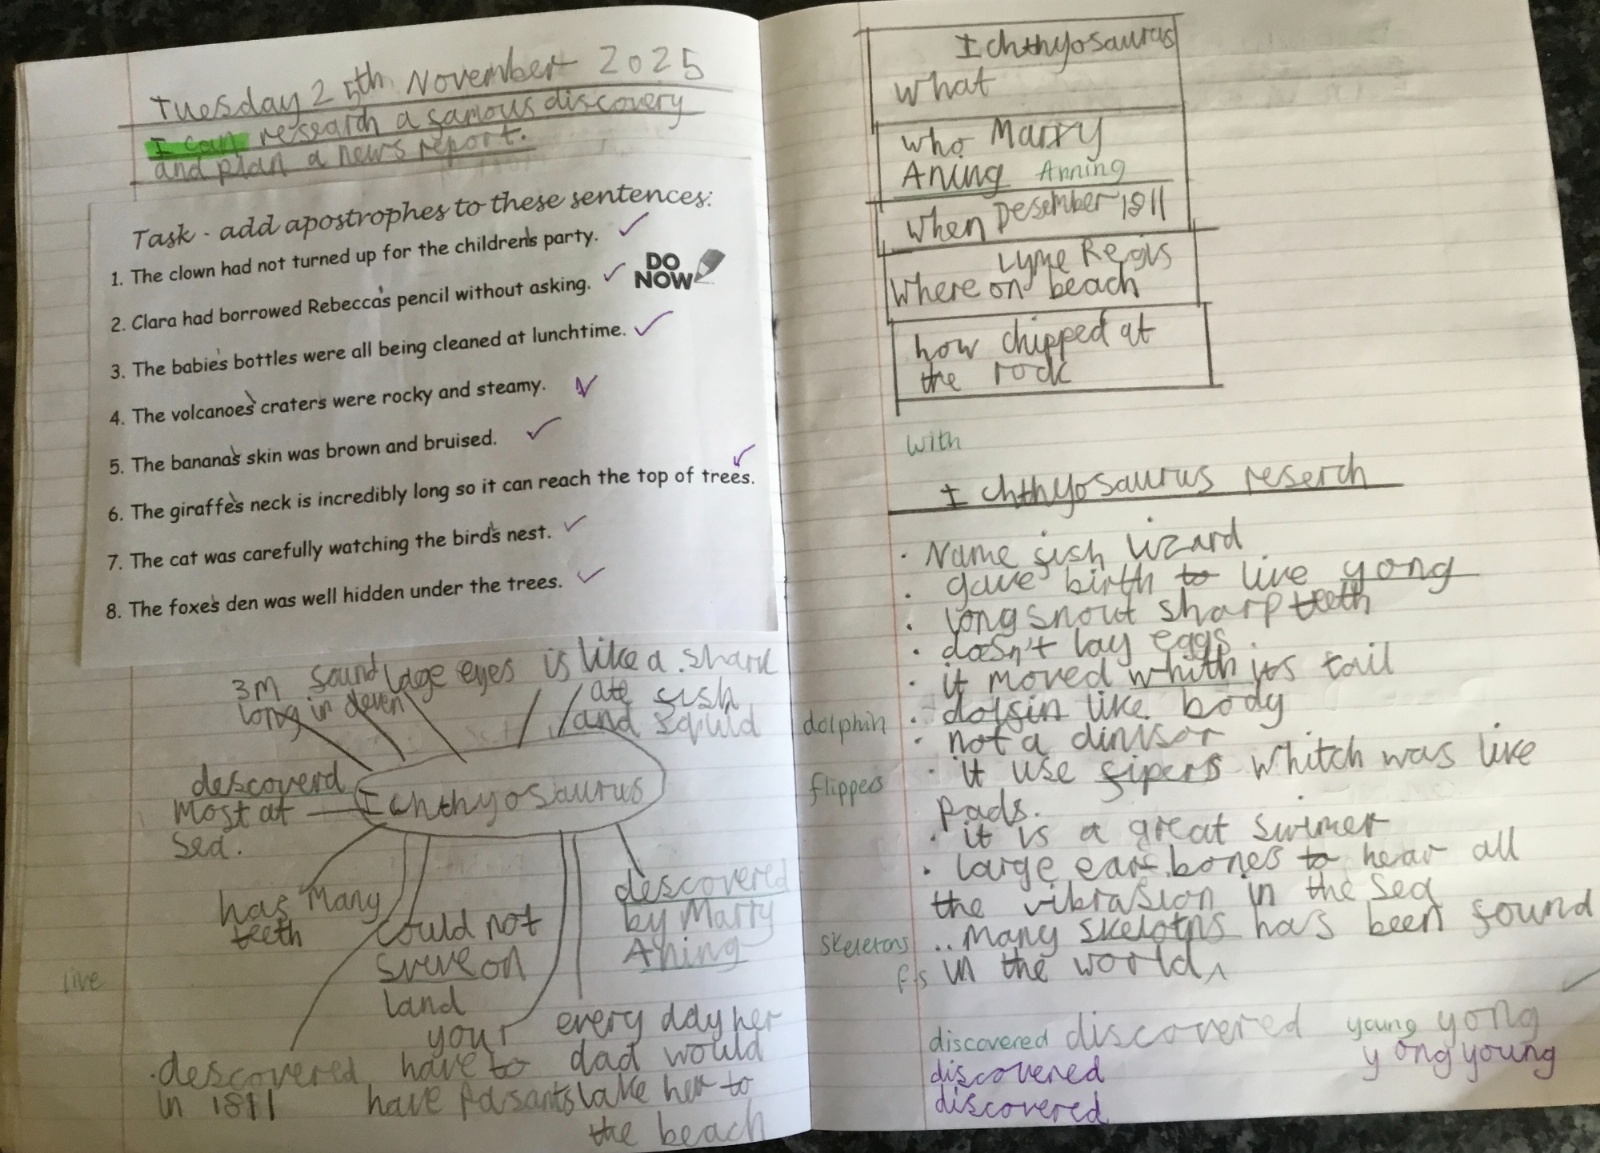 Tuesday 25th November 2025
I can research a famous discovery
and plan a news report.
Task - add apostrophes to these sentences:
1. The clown had not turned up for the children's party.
DO
NOW
2. Clara had borrowed Rebecca's pencil without asking.
3. The babie's bottles were all being cleaned at lunchtime.
4. The volcanoes' craters were rocky and steamy.
5. The banana's skin was brown and bruised.
6. The giraffe's neck is incredibly long so it can reach the top of trees.
7. The cat was carefully watching the bird's nest.
8. The foxe's den was well hidden under the trees.
3m
long
sound
in deven
lage eyes
is like a shark
ate fish
and squid
descoverd
most at
sea.
Ichthyosaurus
has many
teeth
could not
sveve on
land
descovered
by Marry
Aning
live
descovered
in 1811
your
have to
have pasants
every day her
dad would
take her to
the beach
Ichthyosaurus
what
who Marry
Aning Anning
when Desember 1811
Lyme Regis
where on beach
how chipped at
the rock
with
Ichthyosaurus reserch
· Name fish lizard
· gave birth to live yong
· long snout sharp teeth
· doesn't lay eggs
· it moved whith its tail
dolphin · dolfin like body
· not a dinisor
flippers · it use fipers whitch was like
pads.
· it is a great swimer
· large ear bones to hear all
the vibrasion in the sea
skeletons .. many skelotns has been found
f.s in the world ^
discovered discovered young yong
discovered yong young
discovered